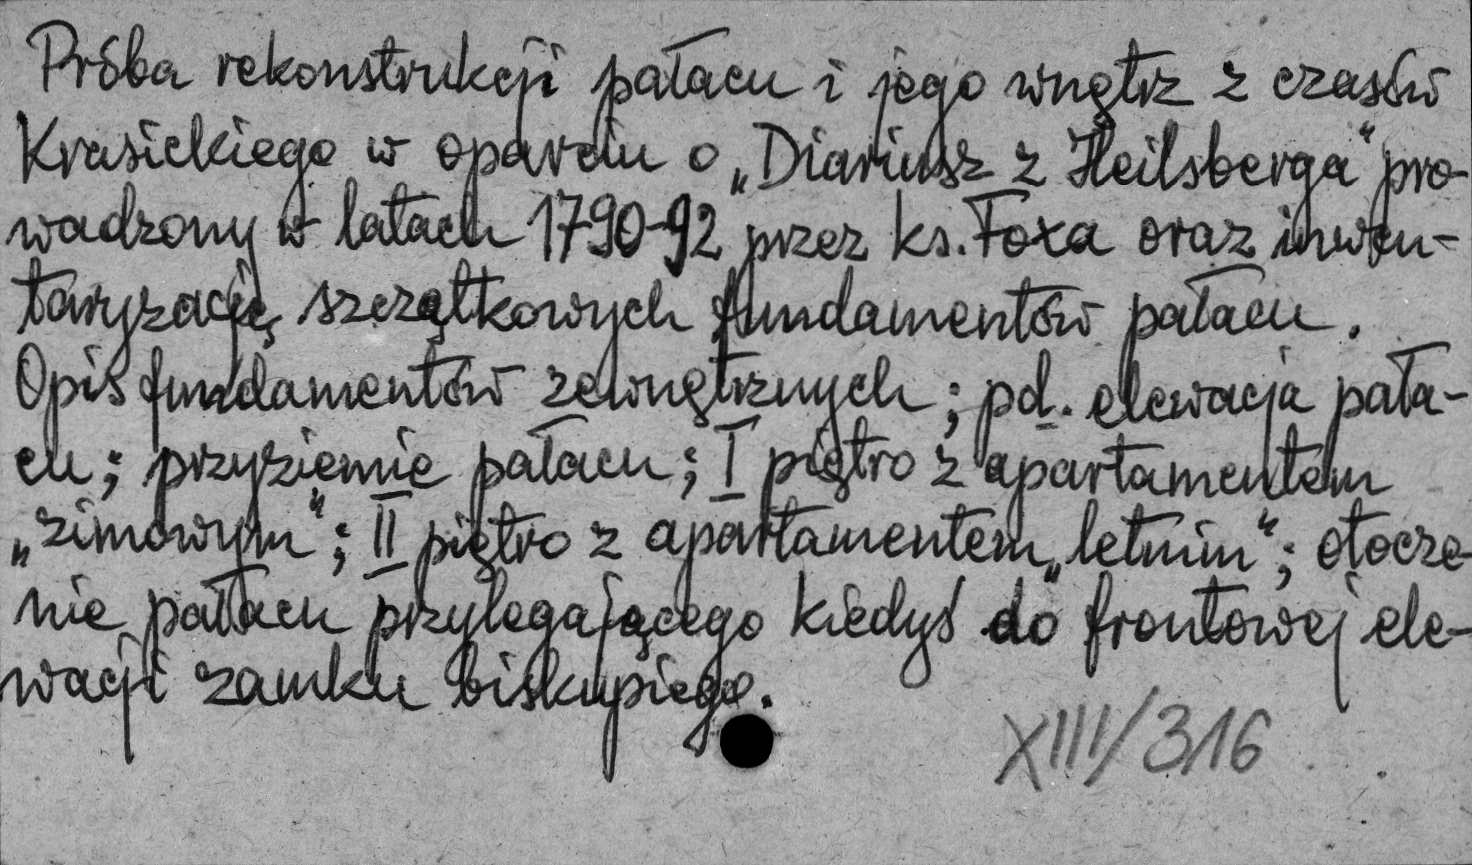 Próba rekonstrukcji pałacu i jego wnętrz z czasów
Krasickiego w oparciu o „Diariusz z Heilsberga" pro-
wadzony w latach 1790-92 przez ks. Foxa oraz inwen-
taryzację szczątkowych fundamentów pałacu.
Opis fundamentów zewnętrznych; pd. elewacja pała-
cu; przyziemie pałacu; I piętro z apartamentem
„zimowym"; II piętro z apartamentem „letnim"; otocze-
nie pałacu przylegającego kiedyś do frontowej ele-
wacji zamku biskupiego.
XIII/316